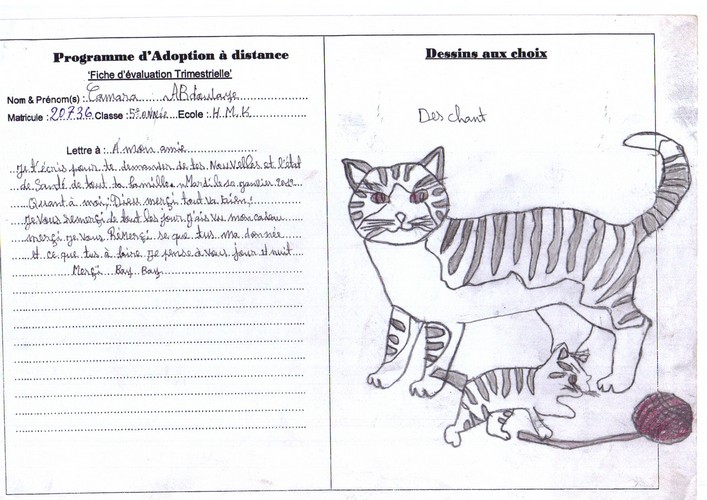 Programme d'Adoption à distance
'Fiche d'évaluation Trimestrielle'
Nom & Prénom(s) : Camara : ABdoulaye
Matricule : 20736 Classe : 5e année Ecole : H.M.K
Lettre à : A mon amie
Je t'écris pour te demander de tes Nouvelles et l'état
de Santé de tout ta famille. Mardi le 10 janvier 2012
Quant à moi, Dieu merçi tout va bien,
Je Vous remerçi de tout les jour j'ais vu mon cadeau
merçi Je vous se que tus ma donnée
et ce que tus à faire je pense à vous jour et nuit
Merçi Bay Bay
Dessins aux choix
Des chant